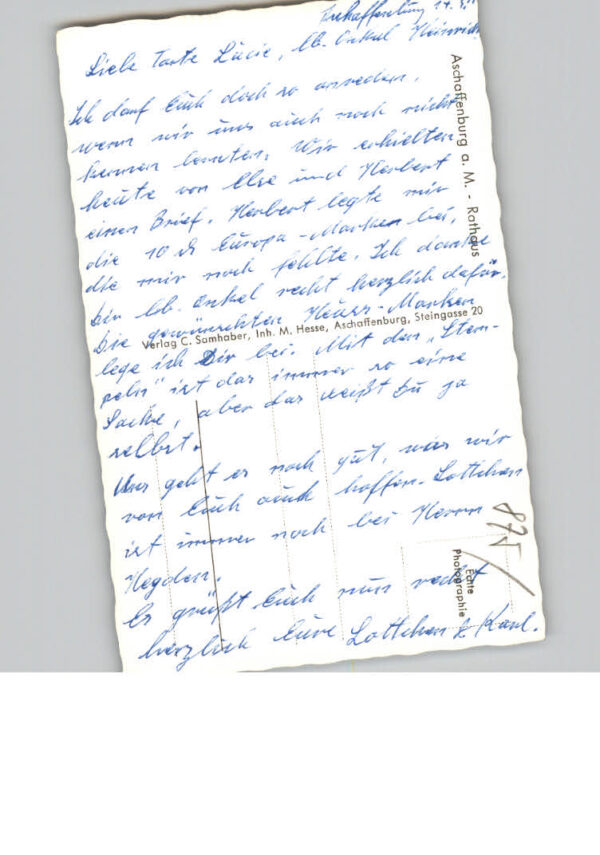 Aschaffenburg
Liebe Tante Lucie, lb. Onkel Heinrich
Ich darf Euch doch so anreden,
wenn wir uns auch noch nicht
kennen lernten. Wir erhielten
heute von Else und Herbert
einen Brief. Herbert legte mir
die 10 Europa-Marken bei,
die mir noch fehlte. Ich danke
Dir lb. Onkel recht herzlich dafür.
Die gewünschten Heuss-Marken
lege ich Dir bei. Mit den „Stem-
peln" ist das immer so eine
Sache, aber das weißt Du ja
selbst.
Uns geht es noch gut, was wir
von Euch auch hoffen. Lottchen
ist immer noch bei Herrn
Es grüßt Euch nun recht
herzlich Eure Lottchen & Karl.
Aschaffenburg a. M. - Rathaus
Verlag C. Samhaber, Inh. M. Hesse, Aschaffenburg, Steingasse 20
Echte
Photographie